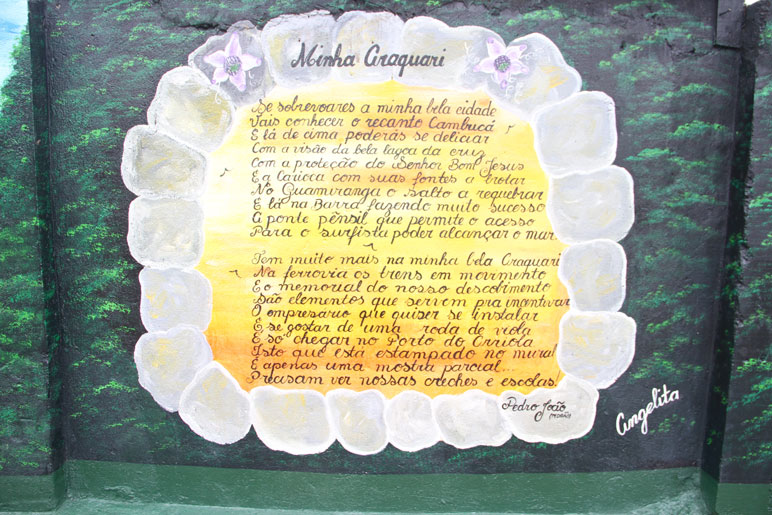 Minha Araquari
Se sobrevoares a minha bela cidade
Vais conhecer o recanto Cambucá
E lá de cima poderás se deliciar
Com a visão da bela lagoa da cruz
Com a proteção do Senhor Bom Jesus
E a Carioca com suas fontes a brotar
No Guamiranga o salto a requebrar
E lá na Barra fazendo muito sucesso
A ponte pênsil que permite o acesso
Para o surfista poder alcançar o mar.
Tem muito mais na minha bela Araquari
Na ferrovia os trens em movimento
E o memorial do nosso descobrimento
São elementos que servem pra incentivar
O empresario que quiser se instalar
E se gostar de uma roda de viola
E só chegar no Porto do Orriola
Isto que está estampado no mural
E apenas uma mostra parcial...
Precisam ver nossas creches e escolas!
Pedro João
Angelita